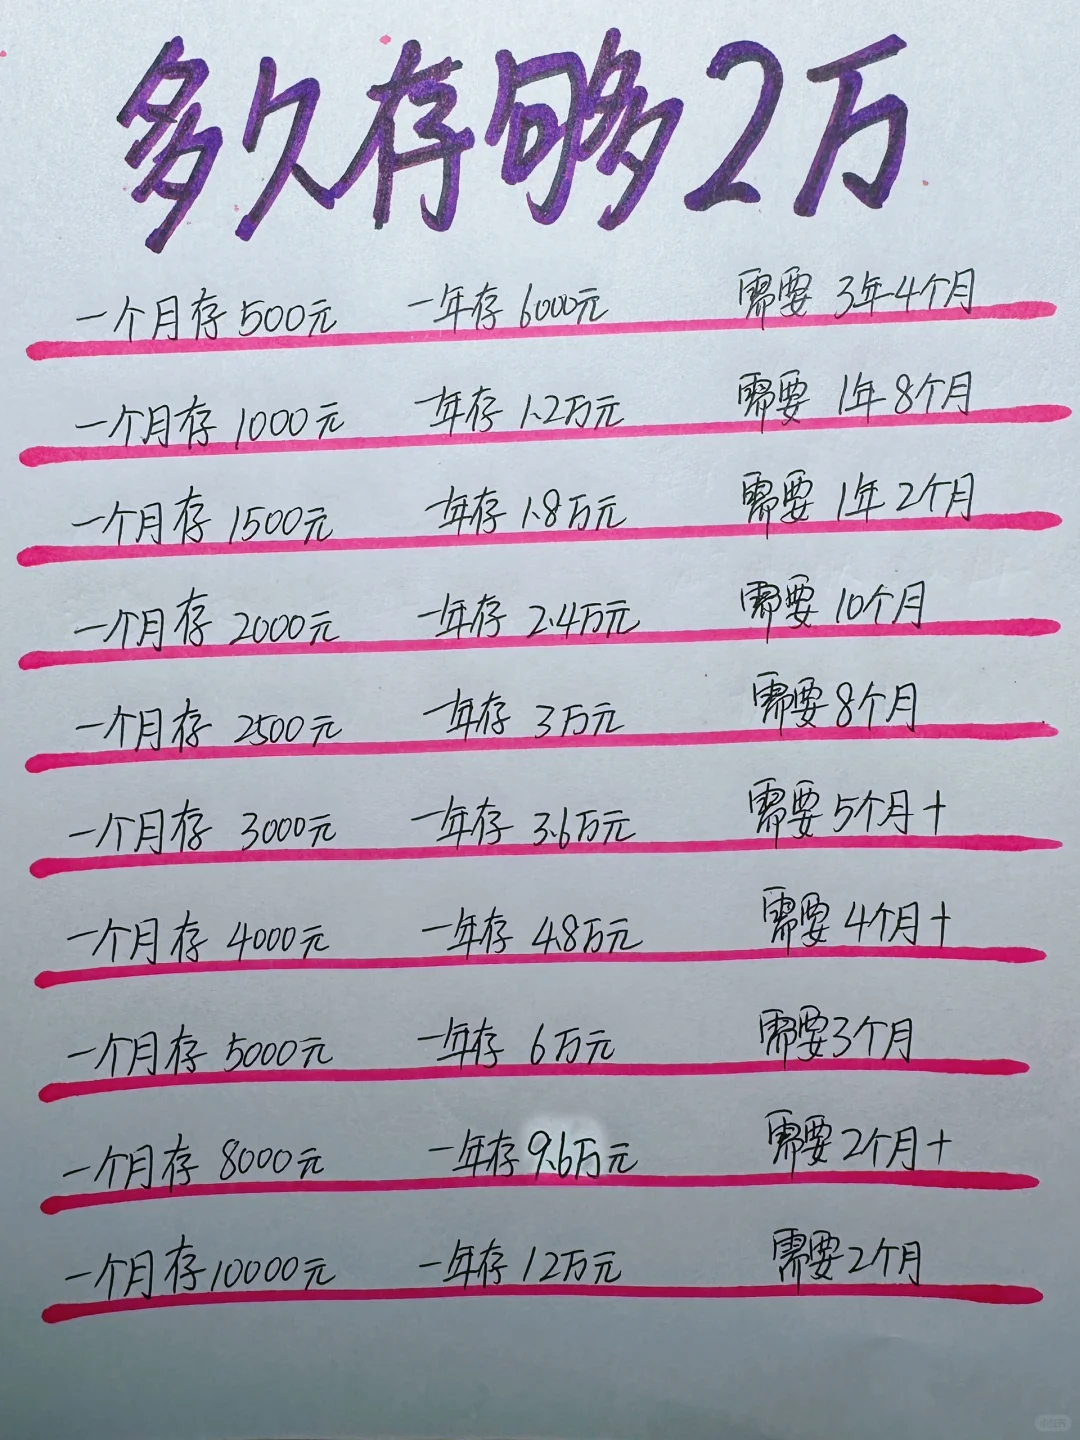 多久存够2万
一个月存 500元 一年存 6000元 需要 3年4个月
一个月存 1000元 一年存 1.2万元 需要 1年8个月
一个月存 1500元 一年存 1.8万元 需要 1年2个月
一个月存 2000元 一年存 2.4万元 需要 10个月
一个月存 2500元 一年存 3万元 需要 8个月
一个月存 3000元 一年存 3.6万元 需要 5个月+
一个月存 4000元 一年存 4.8万元 需要 4个月+
一个月存 5000元 一年存 6万元 需要3个月
一个月存 8000元 一年存 9.6万元 需要 2个月+
一个月存 10000元 一年存 12万元 需要2个月